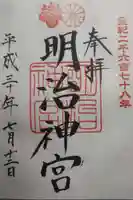 皇紀二千六百七十八年
奉拝
明治神宮
平成三十年七月十二日